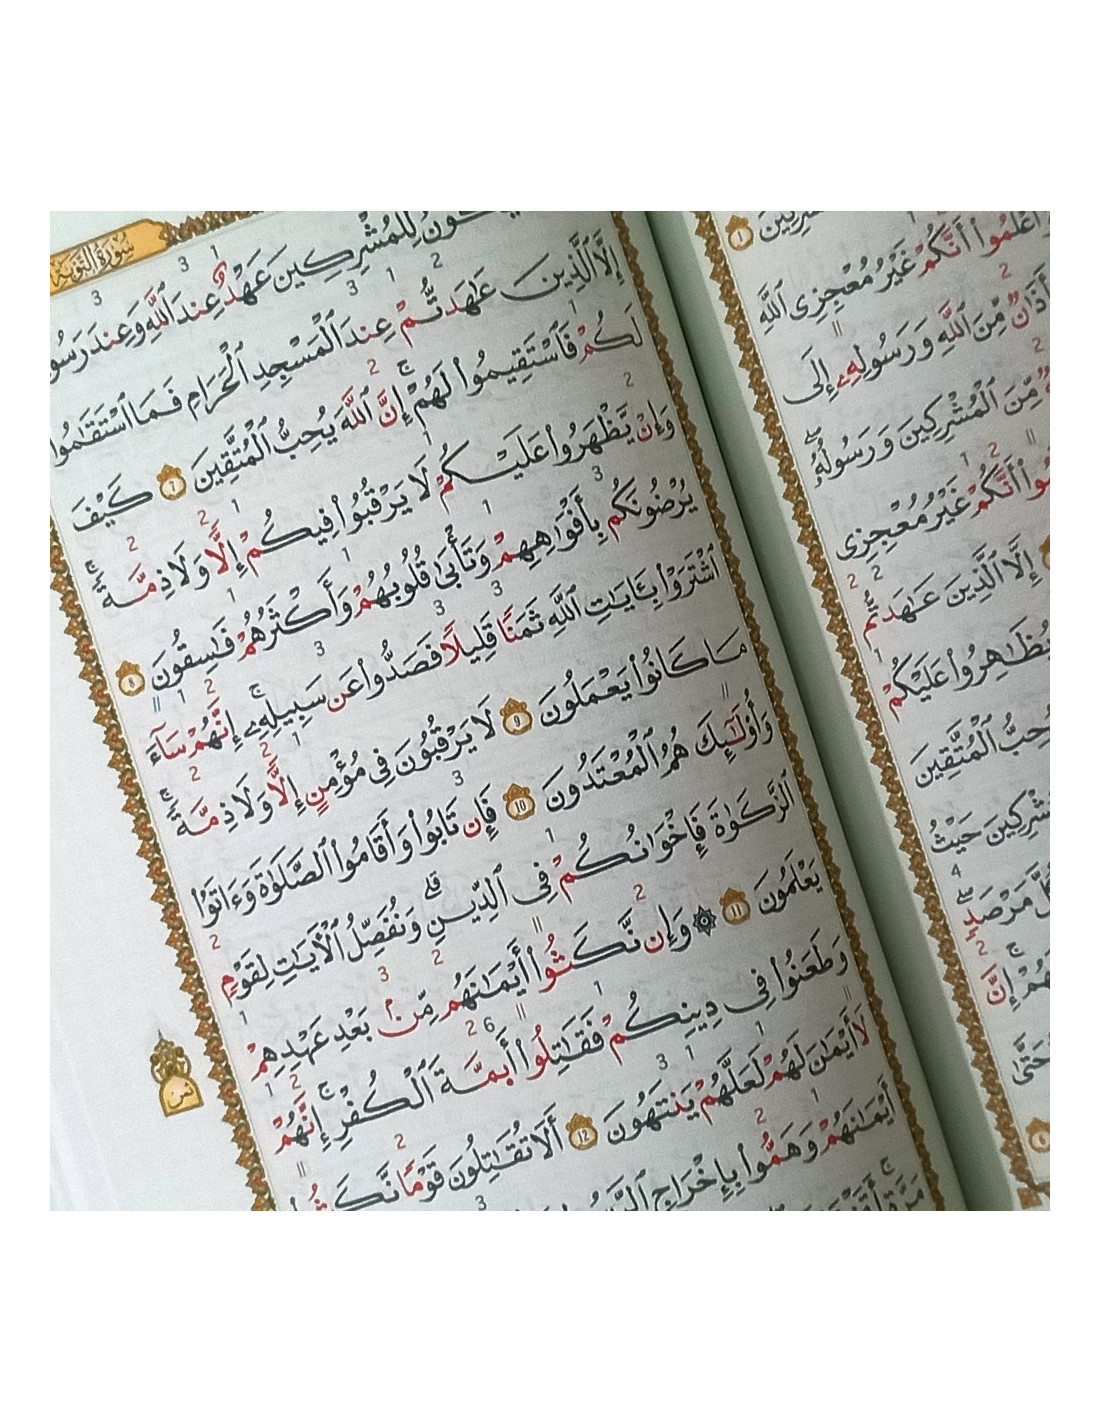 سُورَةُ التَّوْبَةِ
لِلْمُشْرِكِينَ عَهْدٌ عِندَ ٱللَّهِ وَعِندَ
إِلَّا ٱلَّذِينَ عَٰهَدتُّمْ عِندَ ٱلْمَسْجِدِ ٱلْحَرَامِ فَمَا ٱسْتَقَٰمُوا۟
لَكُمْ فَٱسْتَقِيمُوا۟ لَهُمْ ۚ إِنَّ ٱللَّهَ يُحِبُّ ٱلْمُتَّقِينَ 7 كَيْفَ
وَإِن يَظْهَرُوا۟ عَلَيْكُمْ لَا يَرْقُبُوا۟ فِيكُمْ إِلًّا وَلَا ذِمَّةً ۚ
يُرْضُونَكُم بِأَفْوَٰهِهِمْ وَتَأْبَىٰ قُلُوبُهُمْ وَأَكْثَرُهُمْ فَٰسِقُونَ 8
ٱشْتَرَوْا۟ بِـَٔايَٰتِ ٱللَّهِ ثَمَنًا قَلِيلًا فَصَدُّوا۟ عَن سَبِيلِهِۦٓ ۚ إِنَّهُمْ سَآءَ
مَا كَانُوا۟ يَعْمَلُونَ 9 لَا يَرْقُبُونَ فِى مُؤْمِنٍ إِلًّا وَلَا ذِمَّةً ۚ
وَأُو۟لَٰٓئِكَ هُمُ ٱلْمُعْتَدُونَ 10 فَإِن تَابُوا۟ وَأَقَامُوا۟ ٱلصَّلَوٰةَ وَءَاتَوُا۟
ٱلزَّكَوٰةَ فَإِخْوَٰنُكُمْ فِى ٱلدِّينِ ۗ وَنُفَصِّلُ ٱلْءَايَٰتِ لِقَوْمٍ
يَعْلَمُونَ 11 ۞ وَإِن نَّكَثُوٓا۟ أَيْمَٰنَهُم مِّنۢ بَعْدِ عَهْدِهِمْ
وَطَعَنُوا۟ فِى دِينِكُمْ فَقَٰتِلُوٓا۟ أَئِمَّةَ ٱلْكُفْرِ ۚ إِنَّهُمْ
لَآ أَيْمَٰنَ لَهُمْ لَعَلَّهُمْ يَنتَهُونَ 12 أَلَا تُقَٰتِلُونَ قَوْمًا
أَيْمَٰنَهُمْ وَهَمُّوا۟ بِإِخْرَاجِ
مَرَّةٍ ۚ
1
أَنَّكُمْ غَيْرُ مُعْجِزِى ٱللَّهِ
مِّنَ ٱللَّهِ وَرَسُولِهِۦٓ إِلَى
مِّنَ ٱلْمُشْرِكِينَ ۙ وَرَسُولُهُۥ
أَنَّكُمْ غَيْرُ مُعْجِزِى
إِلَّا ٱلَّذِينَ عَٰهَدتُّم
يُظَٰهِرُوا۟ عَلَيْكُمْ
ٱلْمُتَّقِينَ
حَيْثُ
مَرْصَدٍ ۚ
إِنَّ
حَتَّىٰ
6